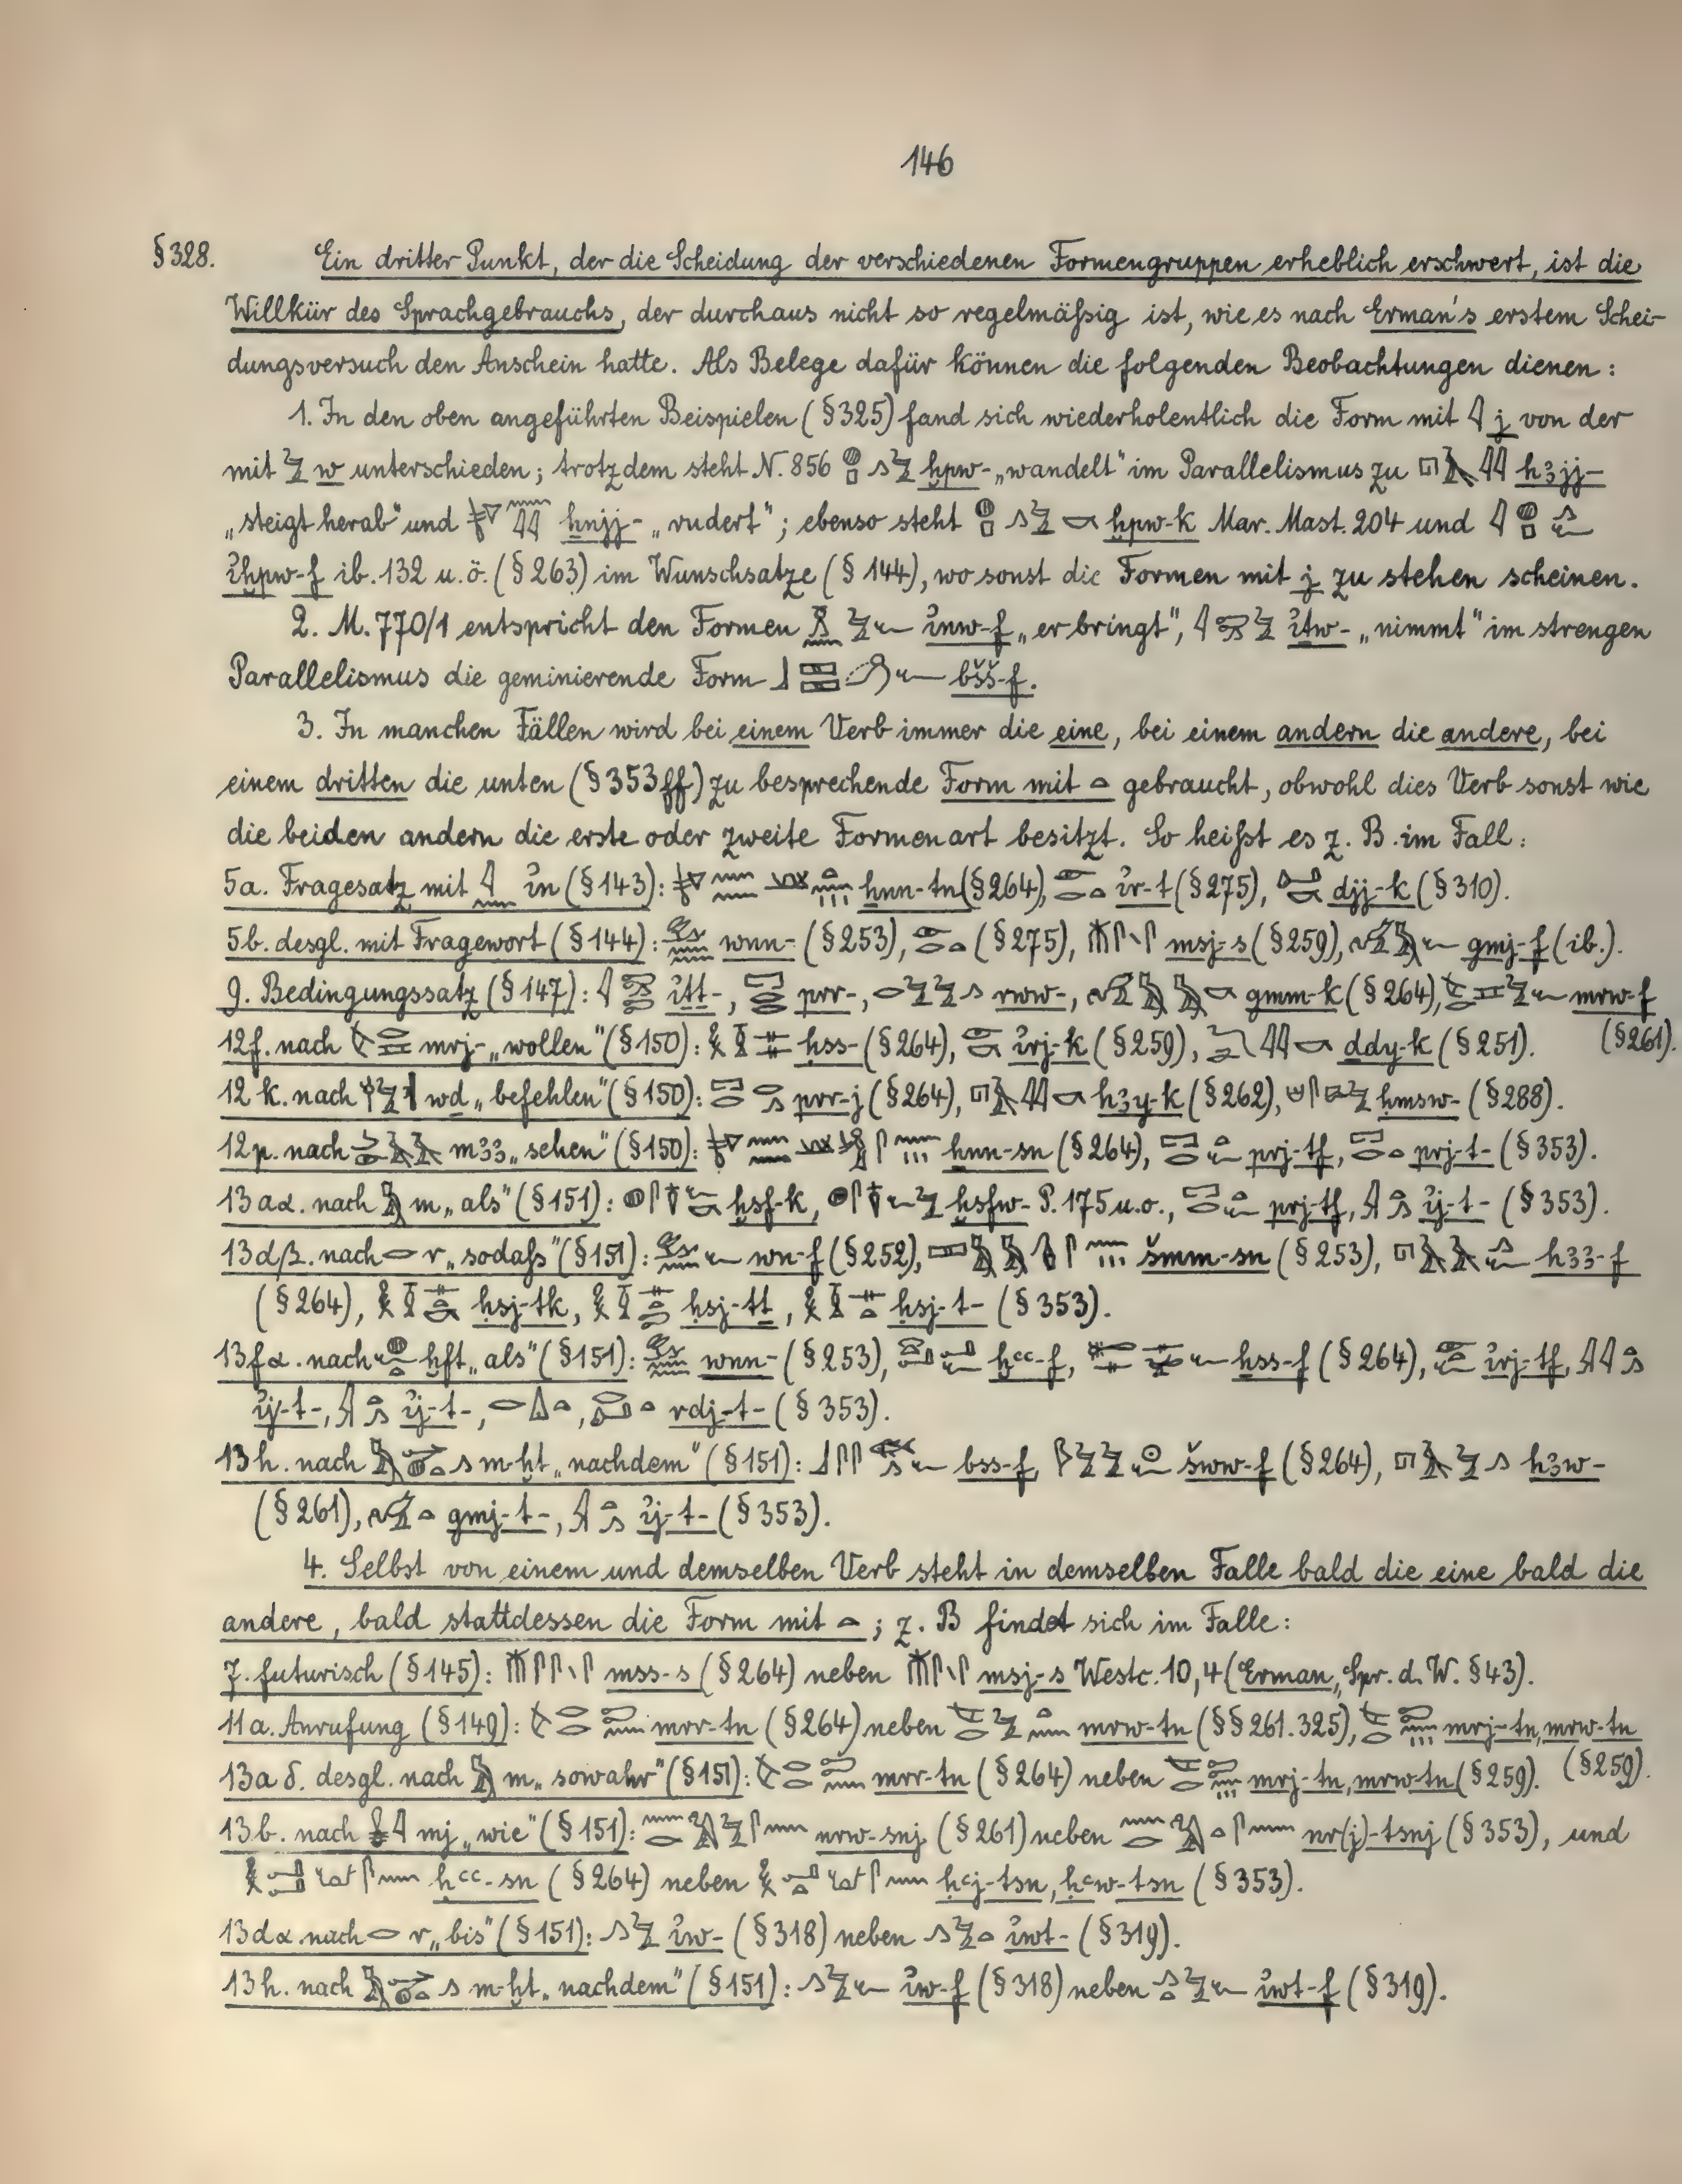 146
§328. Ein dritter Punkt, der die Scheidung der verschiedenen Formengruppen erheblich erschwert, ist die
Willkür des Sprachgebrauchs, der durchaus nicht so regelmäßig ist, wie es nach Erman's erstem Schei-
dungsversuch den Anschein hatte. Als Belege dafür können die folgenden Beobachtungen dienen:
1. In den oben angeführten Beispielen (§325) fand sich wiederholentlich die Form mit 𓇋 j von der
mit 𓅱 w unterschieden; trotzdem steht N. 856 ḫpw- „wandelt" im Parallelismus zu hꜣjj-
„steigt herab" und ẖnjj- „rudert"; ebenso steht ḫpw-k Mar. Mast. 204 und
ỉḫpw-f ib. 132 u.ö. (§263) im Wunschsatze (§144), wo sonst die Formen mit j zu stehen scheinen.
2. M. 770/1 entspricht den Formen ỉnw-f „er bringt", ỉṯw- „nimmt" im strengen
Parallelismus die geminierende Form bšš-f.
3. In manchen Fällen wird bei einem Verb immer die eine, bei einem andern die andere, bei
einem dritten die unten (§353ff) zu besprechende Form mit 𓏏 gebraucht, obwohl dies Verb sonst wie
die beiden andern die erste oder zweite Formenart besitzt. So heißt es z. B. im Fall:
5a. Fragesatz mit ỉn (§143): ẖnn-tn (§264), ỉr-t (§275), djj-k (§310).
5b. desgl. mit Fragewort (§144): wnn- (§253), (§275), msj-s (§259), gmj-f (ib.).
9. Bedingungssatz (§147): ỉṯṯ-, prr-, rww-, gmm-k (§264), mrw-f
12f. nach mrj- „wollen" (§150): ḥss- (§264), ỉrj-k (§259), ḏdy-k (§251). (§261).
12k. nach wḏ „befehlen" (§150): prr-j (§264), hꜣy-k (§262), ḥmsw- (§288).
12p. nach mꜣꜣ „sehen" (§150): ẖnn-sn (§264), prj-tf, prj-t- (§353).
13aα. nach m „als" (§151): ḫsf-k, ḫsfw- P. 175 u.o., prj-tf, ỉj-t- (§353).
13dβ. nach r „sodaß" (§151): wn-f (§252), šmm-sn (§253), hꜣꜣ-f
(§264), ḥsj-tk, ḥsj-tṯ, ḥsj-t- (§353).
13fα. nach ḫft „als" (§151): wnn- (§253), ḫꜥꜥ-f, ḥss-f (§264), ỉrj-tf,
ỉj-t-, ỉj-t-, rdj-t- (§353).
13h. nach m-ḫt „nachdem" (§151): bss-f, šww-f (§264), hꜣw-
(§261), gmj-t-, ỉj-t- (§353).
4. Selbst von einem und demselben Verb steht in demselben Falle bald die eine bald die
andere, bald stattdessen die Form mit 𓏏; z. B findet sich im Falle:
7. futurisch (§145): mss-s (§264) neben msj-s Westc. 10,4 (Erman, Spr. d. W. §43).
11a. Anrufung (§149): mrr-tn (§264) neben mrw-tn (§§261.325), mrj-tn, mrw-tn
13aδ. desgl. nach m „sowahr" (§151): mrr-tn (§264) neben mrj-tn, mrw-tn (§259). (§259).
13b. nach mj „wie" (§151): nrw-snj (§261) neben nr(j)-tsnj (§353), und
ḥꜥꜥ-sn (§264) neben ḥꜥj-tsn, ḥꜥw-tsn (§353).
13dα. nach r „bis" (§151): ỉw- (§318) neben ỉwt- (§319).
13h. nach m-ḫt „nachdem" (§151): ỉw-f (§318) neben ỉwt-f (§319).